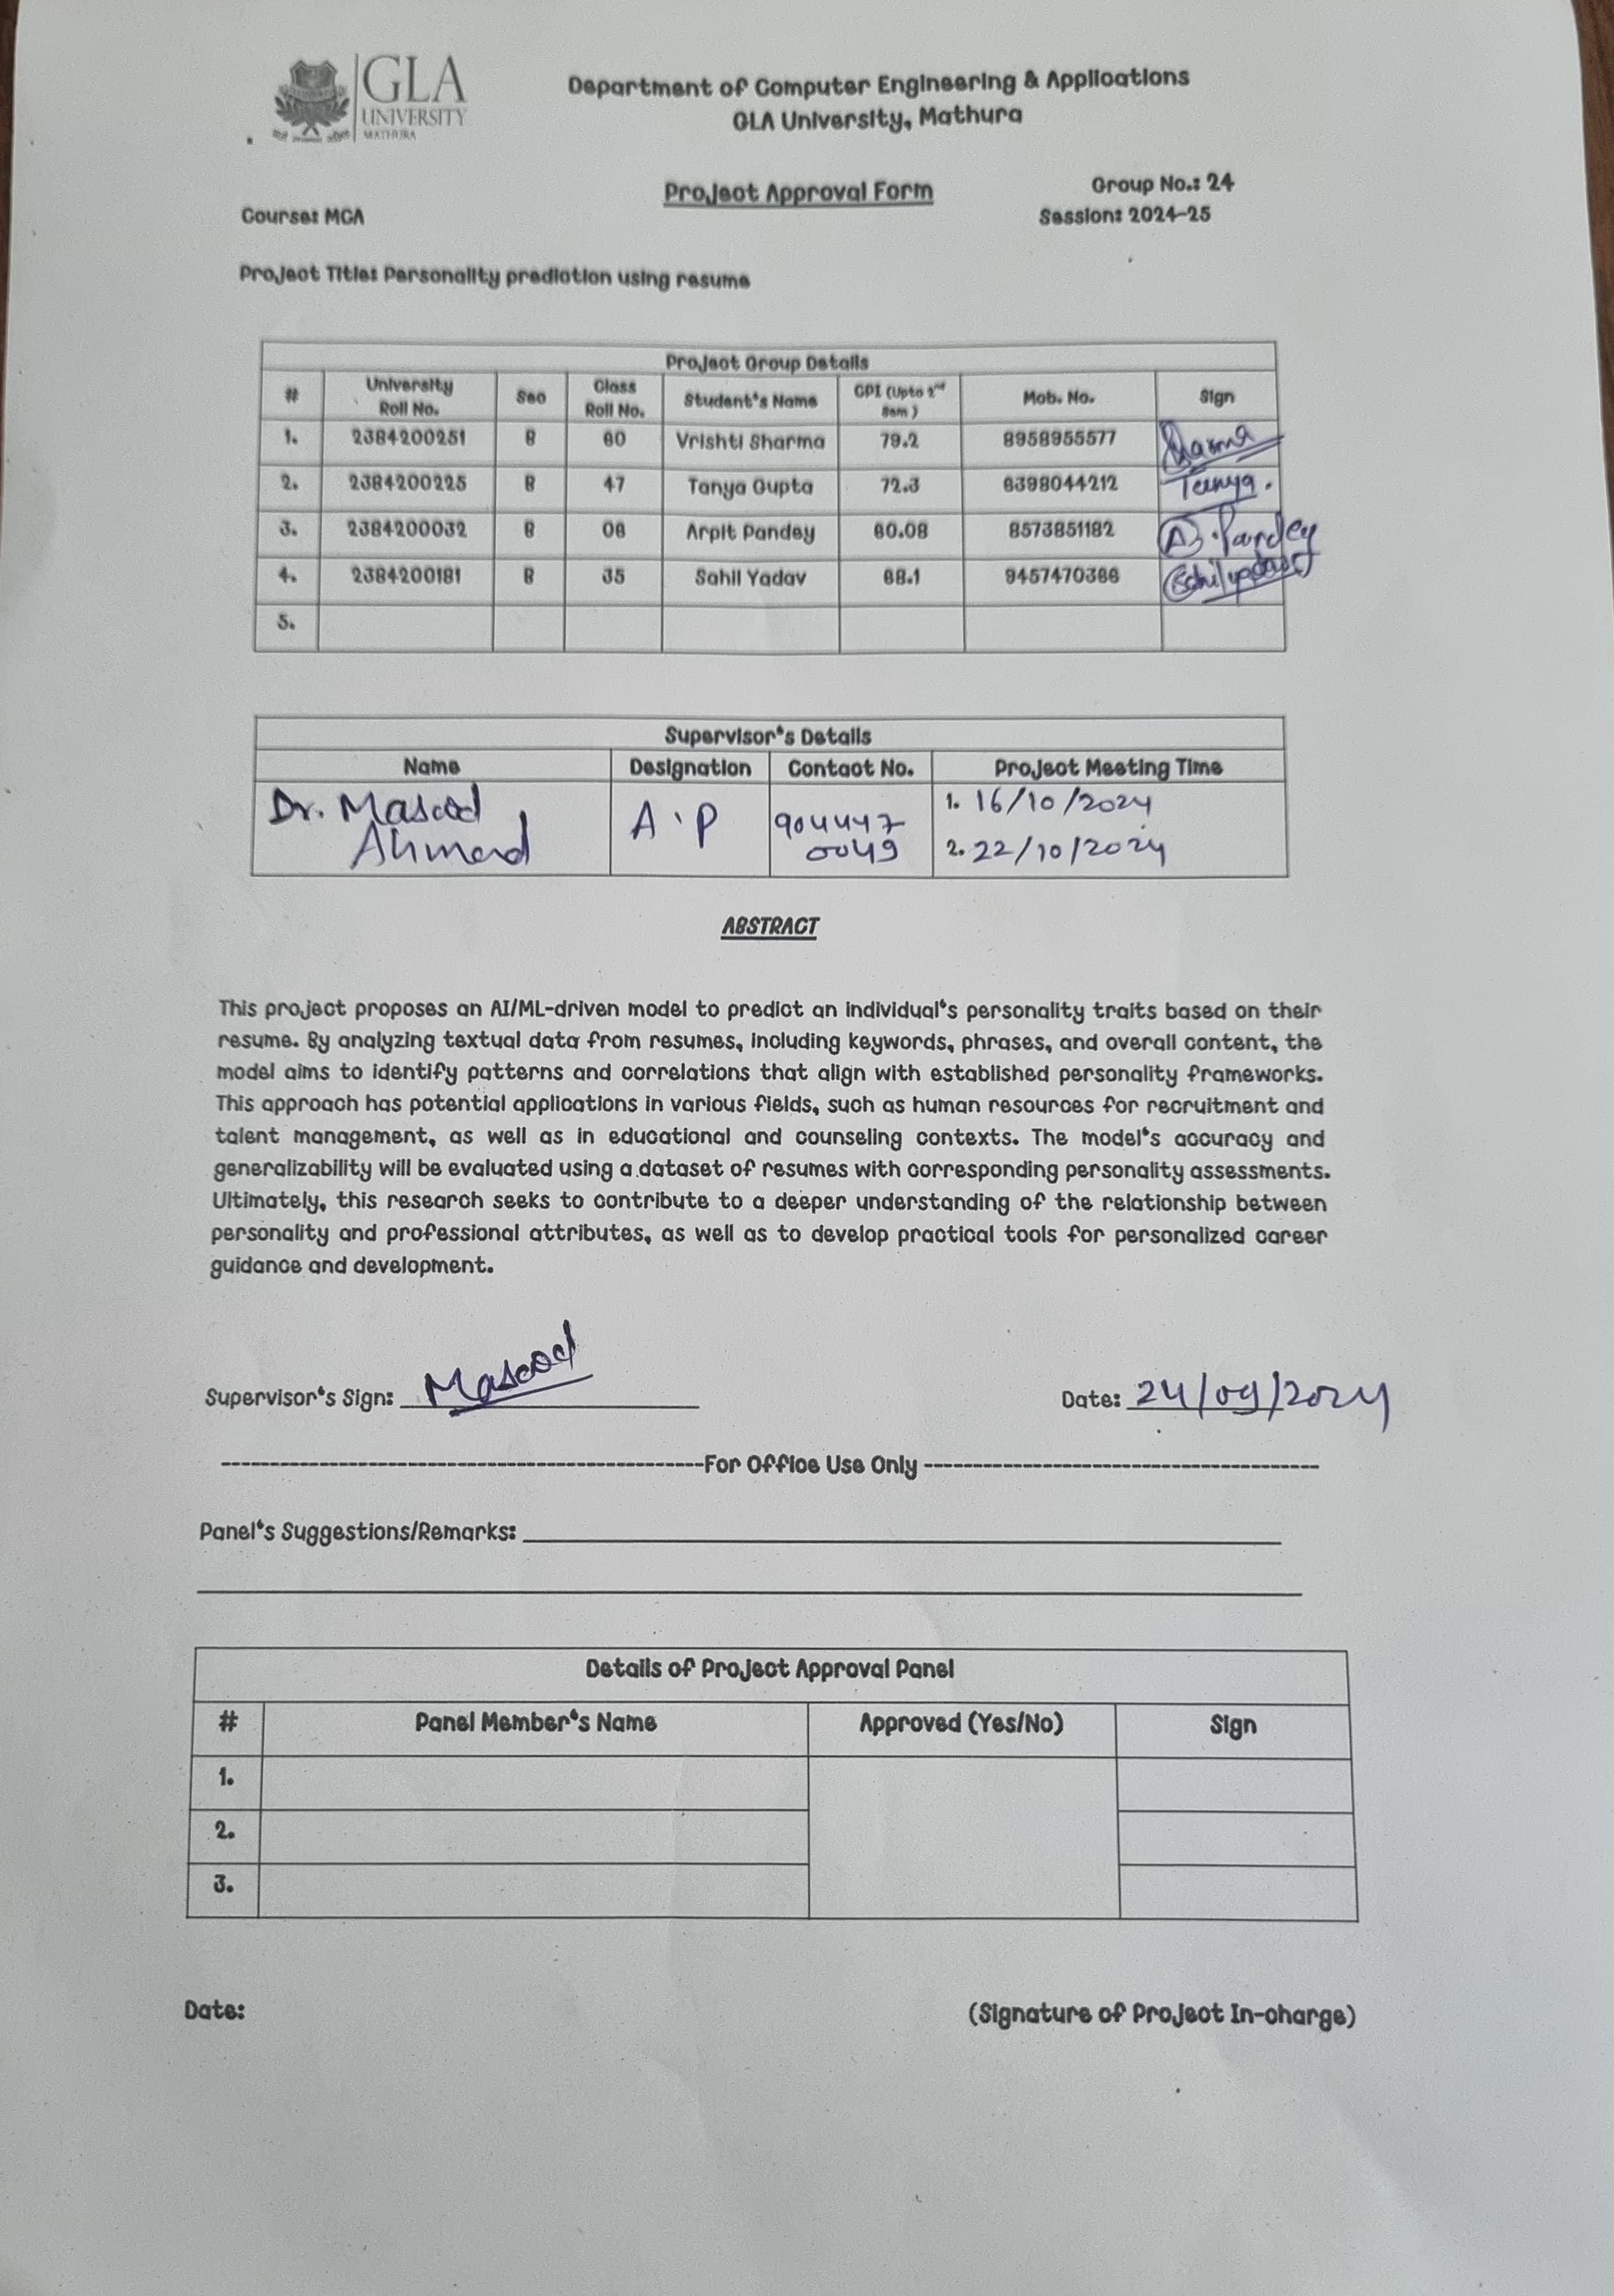 GLA
UNIVERSITY
MATHURA
Department of Computer Engineering & Applications
GLA University, Mathura
Project Approval Form
Group No.: 24
Course: MCA
Session: 2024-25
Project Title: Personality prediction using resume
Project Group Details
# University Roll No. Sec Class Roll No. Student's Name CPI (Upto 2nd Sem) Mob. No. Sign
1. 2384200251 B 60 Vrishti Sharma 79.2 8958955577 Sharma
2. 2384200225 B 47 Tanya Gupta 72.3 6398044212 Tanya.
3. 2384200032 B 08 Arpit Pandey 60.08 8573851182 A. Pandey
4. 2384200181 B 35 Sahil Yadav 68.1 9457470366 Sahil yadav
5.
Supervisor's Details
Name Designation Contact No. Project Meeting Time
Dr. Masood Ahmad A.P 9044470049 1. 16/10/2024
2. 22/10/2024
ABSTRACT
This project proposes an AI/ML-driven model to predict an individual's personality traits based on their
resume. By analyzing textual data from resumes, including keywords, phrases, and overall content, the
model aims to identify patterns and correlations that align with established personality frameworks.
This approach has potential applications in various fields, such as human resources for recruitment and
talent management, as well as in educational and counseling contexts. The model's accuracy and
generalizability will be evaluated using a dataset of resumes with corresponding personality assessments.
Ultimately, this research seeks to contribute to a deeper understanding of the relationship between
personality and professional attributes, as well as to develop practical tools for personalized career
guidance and development.
Supervisor's Sign: Masood Date: 24/09/2024
For Office Use Only
Panel's Suggestions/Remarks:
Details of Project Approval Panel
# Panel Member's Name Approved (Yes/No) Sign
1.
2.
3.
Date: (Signature of Project In-charge)